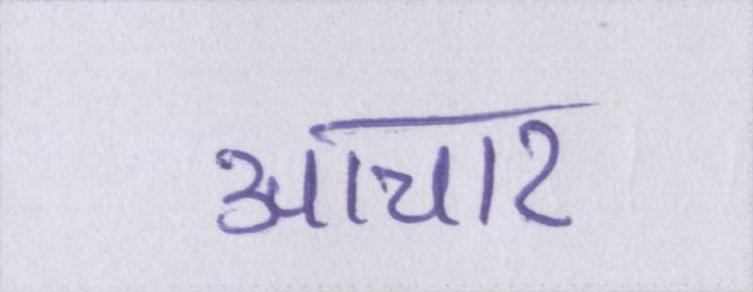 आचार